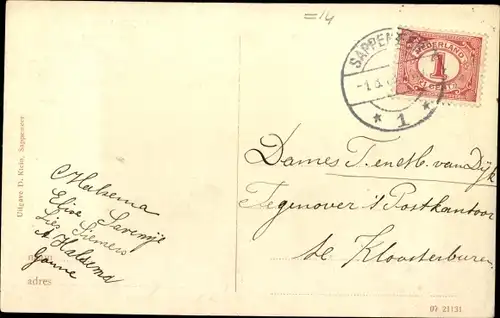 =14
SAPPEMEER
1
NEDERLAND
1
CENT
Uitgave D. Klein, Sappemeer
Halsema
Elise
Lies Siemens
A Halsema
Janne
naam
adres
Dames T. en M. van Dijk
Tegenover 't Postkantoor
te Kloosterburen
07 21131